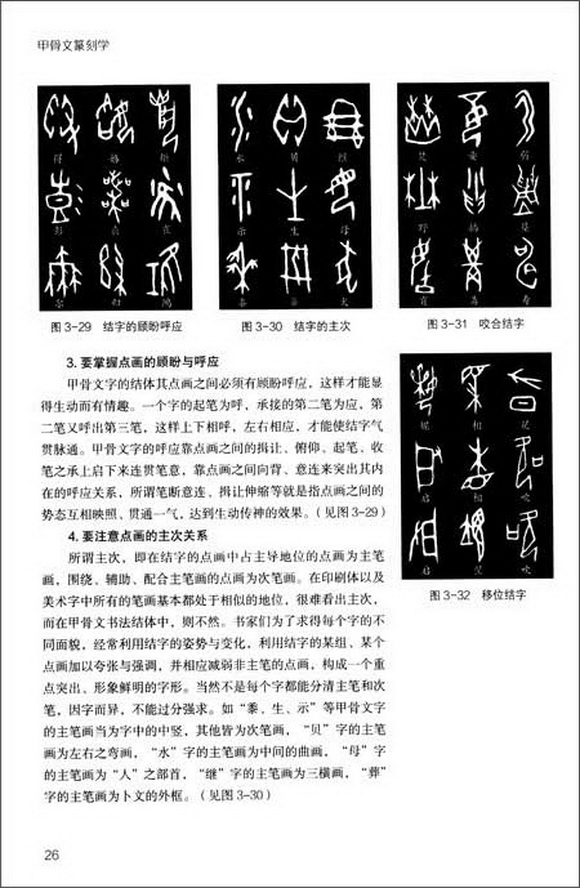 甲骨文篆刻学
图 3-29 结字的顾盼呼应
图 3-30 结字的主次
图 3-31 咬合结字
3. 要掌握点画的顾盼与呼应
甲骨文字的结体其点画之间必须有顾盼呼应，这样才能显
得生动而有情趣。一个字的起笔为呼，承接的第二笔为应，第
二笔又呼出第三笔，这样上下相呼，左右相应，才能使结字气
贯脉通。甲骨文字的呼应靠点画之间的揖让、俯仰、起笔、收
笔之承上启下来连贯笔意，靠点画之间向背、意连来突出其内
在的呼应关系，所谓笔断意连、揖让伸缩等就是指点画之间的
势态互相映照、贯通一气，达到生动传神的效果。（见图3-29）
4. 要注意点画的主次关系
所谓主次，即在结字的点画中占主导地位的点画为主笔
画，围绕、辅助、配合主笔画的点画为次笔画。在印刷体以及
美术字中所有的笔画基本都处于相似的地位，很难看出主次，
而在甲骨文书法结体中，则不然。书家们为了求得每个字的不
同面貌，经常利用结字的姿势与变化，利用结字的某组、某个
点画加以夸张与强调，并相应减弱非主笔的点画，构成一个重
点突出、形象鲜明的字形。当然不是每个字都能分清主笔和次
笔，因字而异，不能过分强求。如“黍，生、示”等甲骨文字
的主笔画当为字中的中竖，其他皆为次笔画，“贝”字的主笔
画为左右之弯画，“水”字的主笔画为中间的曲画，“母”字
的主笔画为“人”之部首，“继”字的主笔画为三横画，“葬”
字的主笔画为卜文的外框。（见图3-30）
图 3-32 移位结字
26